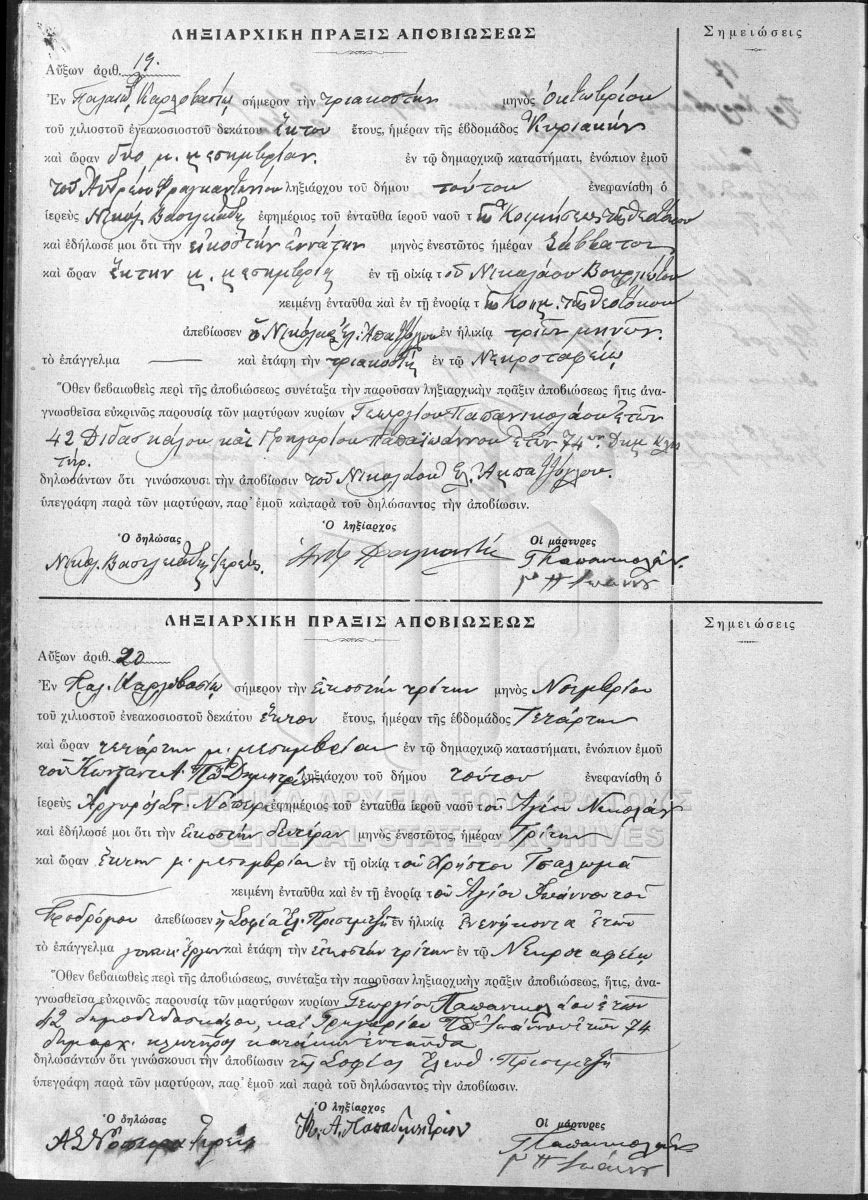 ΛΗΞΙΑΡΧΙΚΗ ΠΡΑΞΙΣ ΑΠΟΒΙΩΣΕΩΣ
Σημειώσεις
Αὔξων ἀριθ. 19.
Ἐν Παλαιῷ Καρλοβασίῳ σήμερον τὴν τριακοστὴν μηνὸς Ὀκτωβρίου
τοῦ χιλιοστοῦ ἐνεακοσιοστοῦ δεκάτου ἕκτου ἔτους, ἡμέραν τῆς ἑβδομάδος Κυριακὴν
καὶ ὥραν δύο μ. μεσημβρίαν. ἐν τῷ δημαρχικῷ καταστήματι, ἐνώπιον ἐμοῦ
τοῦ Ἀνδρέου ληξιάρχου τοῦ δήμου τούτου ἐνεφανίσθη ὁ
ἱερεὺς Νικόλ. ἐφημέριος τοῦ ἐνταῦθα ἱεροῦ ναοῦ τῆς Κοιμήσεως τῆς Θεοτόκου
καὶ ἐδήλωσέ μοι ὅτι τὴν εἰκοστὴν ἐννάτην μηνὸς ἐνεστῶτος ἡμέραν Σάββατον
καὶ ὥραν ἕκτην μ. μεσημβρίας ἐν τῇ οἰκίᾳ τοῦ Νικολάου
κειμένῃ ἐνταῦθα καὶ ἐν τῇ ἐνορίᾳ τῆς Κοιμ. τῆς Θεοτόκου
ἀπεβίωσεν ὁ Νικόλαος Ἐλ. ἐν ἡλικίᾳ τριῶν μηνῶν.
τὸ ἐπάγγελμα — καὶ ἐτάφη τὴν τριακοστὴν ἐν τῷ Νεκροταφείῳ
Ὅθεν βεβαιωθεὶς περὶ τῆς ἀποβιώσεως συνέταξα τὴν παροῦσαν ληξιαρχικὴν πρᾶξιν ἀποβιώσεως ἥτις ἀνα-
γνωσθεῖσα εὐκρινῶς παρουσίᾳ τῶν μαρτύρων κυρίων Γεωργίου Παπανικολάου ἐτῶν
42 Διδασκάλου καὶ Γρηγορίου Παπαϊωάννου ἐτῶν 74 δημ. κλη
τήρ.
δηλωσάντων ὅτι γινώσκουσι τὴν ἀποβίωσιν τοῦ Νικολάου Ἐλ.
ὑπεγράφη παρὰ τῶν μαρτύρων, παρ' ἐμοῦ καὶπαρὰ τοῦ δηλώσαντος τὴν ἀποβίωσιν.
Ὁ δηλώσας
Ὁ ληξίαρχος
Οἱ μάρτυρες
Νικόλ. ἱερεύς
Γ Παπανικολάου
ΛΗΞΙΑΡΧΙΚΗ ΠΡΑΞΙΣ ΑΠΟΒΙΩΣΕΩΣ
Σημειώσεις
Αὔξων ἀριθ. 20
Ἐν Παλ. Καρλοβασίῳ σήμερον τὴν εἰκοστὴν τρίτην μηνὸς Νοεμβρίου
τοῦ χιλιοστοῦ ἐνεακοσιοστοῦ δεκάτου ἕκτου ἔτους, ἡμέραν τῆς ἑβδομάδος Τετάρτην
καὶ ὥραν τετάρτην μ. μεσημβρίαν ἐν τῷ δημαρχικῷ καταστήματι, ἐνώπιον ἐμοῦ
τοῦ Κωνσταντ. Α. Παπαδημητρίου ληξιάρχου τοῦ δήμου τούτου ἐνεφανίσθη ὁ
ἱερεὺς ἐφημέριος τοῦ ἐνταῦθα ἱεροῦ ναοῦ τοῦ Ἁγίου Νικολάου
καὶ ἐδήλωσέ μοι ὅτι τὴν εἰκοστὴν δευτέραν μηνὸς ἐνεστῶτος, ἡμέραν Τρίτην
καὶ ὥραν ἕκτην μ. μεσημβρίαν ἐν τῇ οἰκίᾳ τοῦ Χρήστου Τσαλωμᾶ
κειμένῃ ἐνταῦθα καὶ ἐν τῇ ἐνορίᾳ τοῦ Ἁγίου Ἰωάννου τοῦ
Προδρόμου ἀπεβίωσεν ἡ Σοφία Ἐλ. ἐν ἡλικίᾳ ἐνενήκοντα ἐτῶν
τὸ ἐπάγγελμα γυναικ. ἔργων καὶ ἐτάφη τὴν εἰκοστὴν τρίτην ἐν τῷ Νεκροταφείῳ
Ὅθεν βεβαιωθεὶς περὶ τῆς ἀποβιώσεως, συνέταξα τὴν παροῦσαν ληξιαρχικὴν πρᾶξιν ἀποβιώσεως, ἥτις, ἀνα-
γνωσθεῖσα εὐκρινῶς παρουσίᾳ τῶν μαρτύρων κυρίων Γεωργίου Παπανικολάου ἐτῶν
42 δημοδιδασκάλου, καὶ Γρηγορίου Παπαϊωάννου ἐτῶν 74
δημαρχ. κλητῆρος κατοίκων ἐνταῦθα
δηλωσάντων ὅτι γινώσκουσι τὴν ἀποβίωσιν τῆς Σοφίας Ἐλευθ.
ὑπεγράφη παρὰ τῶν μαρτύρων, παρ' ἐμοῦ καὶ παρὰ τοῦ δηλώσαντος τὴν ἀποβίωσιν.
Ὁ δηλώσας
Ὁ ληξίαρχος
Οἱ μάρτυρες
Κ. Α. Παπαδημητρίου
Γ Παπανικολάου
ΓΕΝΙΚΑ ΑΡΧΕΙΑ ΤΟΥ ΚΡΑΤΟΥΣ
GENERAL STATE ARCHIVES